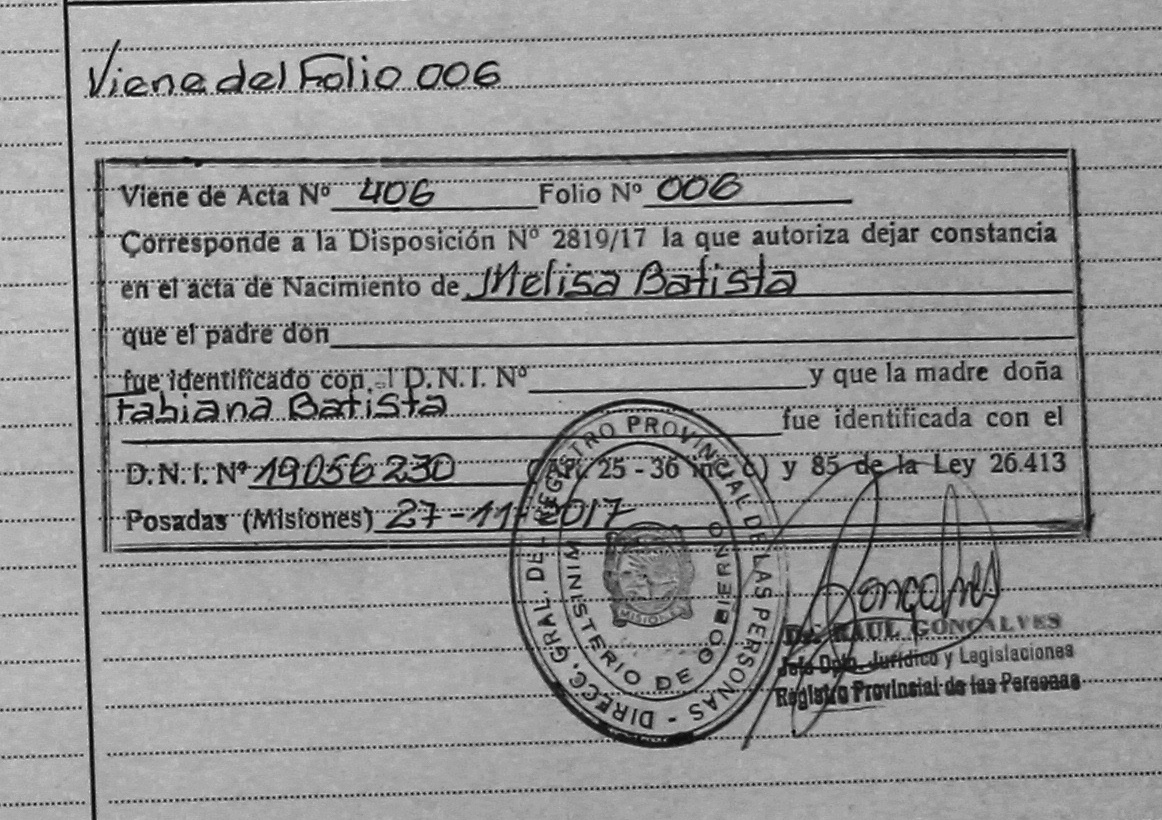 Viene del Folio 006
Viene de Acta Nº 406 Folio Nº 006
Corresponde a la Disposición Nº 2819/17 la que autoriza dejar constancia
en el acta de Nacimiento de Melisa Batista
que el padre don
fue identificado con el D.N.I. Nº y que la madre doña
Fabiana Batista
fue identificada con el
D.N.I. Nº 19056230 (Art. 25 - 36 inc. c) y 85 de la Ley 26.413
Posadas (Misiones) 27-11-2017
DIRECC. GRAL. DE REGISTRO PROVINCIAL DE LAS PERSONAS
MINISTERIO DE GOBIERNO
MISIONES
Gonçalves
Dr. RAUL GONÇALVES
Jefe Dpto. Jurídico y Legislaciones
Registro Provincial de las Personas